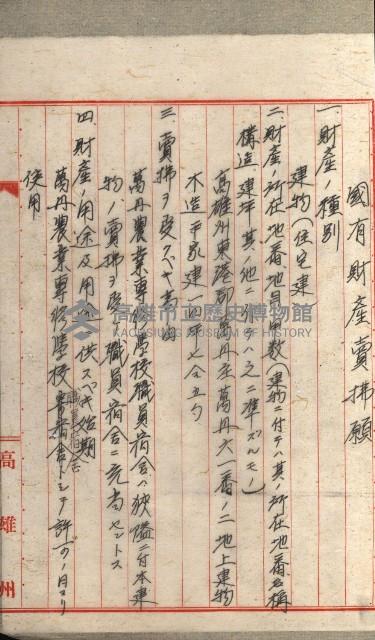 國有財產賣拂願
一、財產ノ種別
建物(住宅建
二、財產ノ所在地番地目甲數(建物ニ付テハ其ノ所在地番名稱
構造、建坪其ノ他ニ付テハ之ニ準ズルモノ)
高雄州東港郡萬丹庄萬丹六一番ノ二地上建物
木造平家建 七合五勺
三、賣拂ヲ受クベキ
萬丹農業專修學校職員宿舍ハ狹隘ニ付本建
物ノ賣拂ヲ受ケ職員宿舍ニ充當セントス
四、財產ノ用途及用ニ供スベキ始期
萬丹農業專修學校職員宿舍トシテ許可ノ日ヨリ
使用
高雄州
高雄市立歷史博物館
KAOHSIUNG MUSEUM OF HISTORY